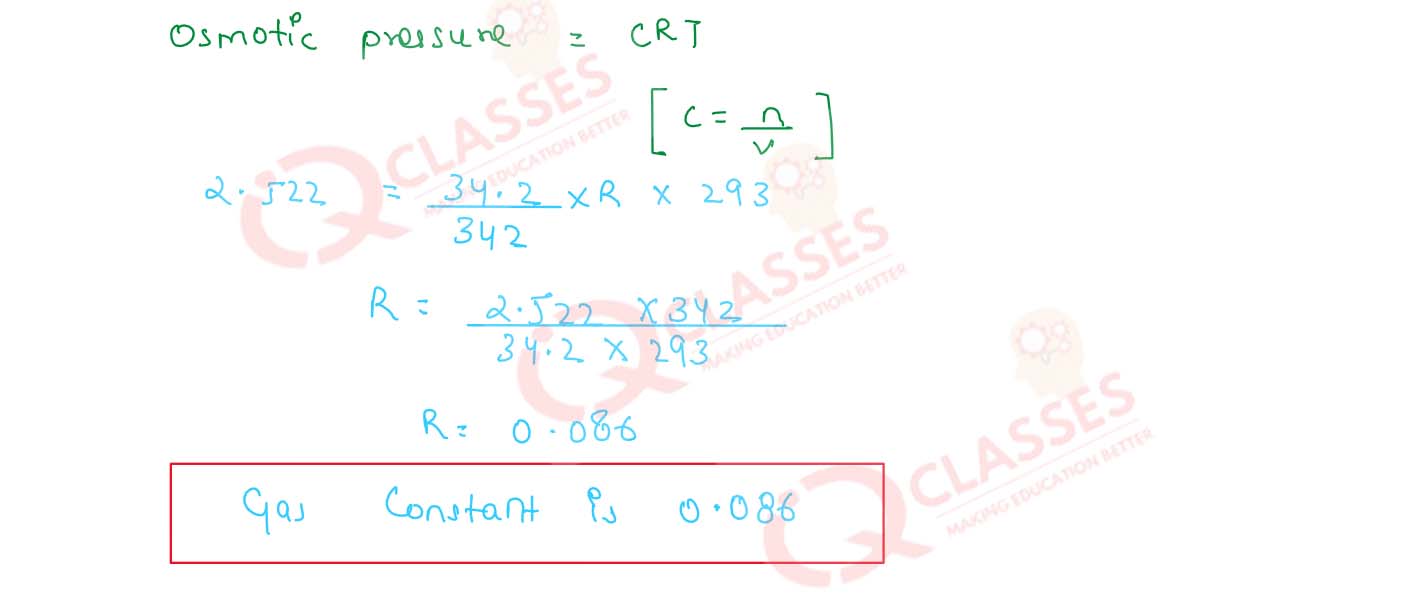 Osmotic pressure = CRT
[ C = n/v ]
2.522 = 34.2/342 × R × 293
R = 2.522 × 342 / 34.2 × 293
R = 0.086
Gas Constant is 0.086
CLASSES
MAKING EDUCATION BETTER
CLASSES
MAKING EDUCATION BETTER
CLASSES
MAKING EDUCATION BETTER